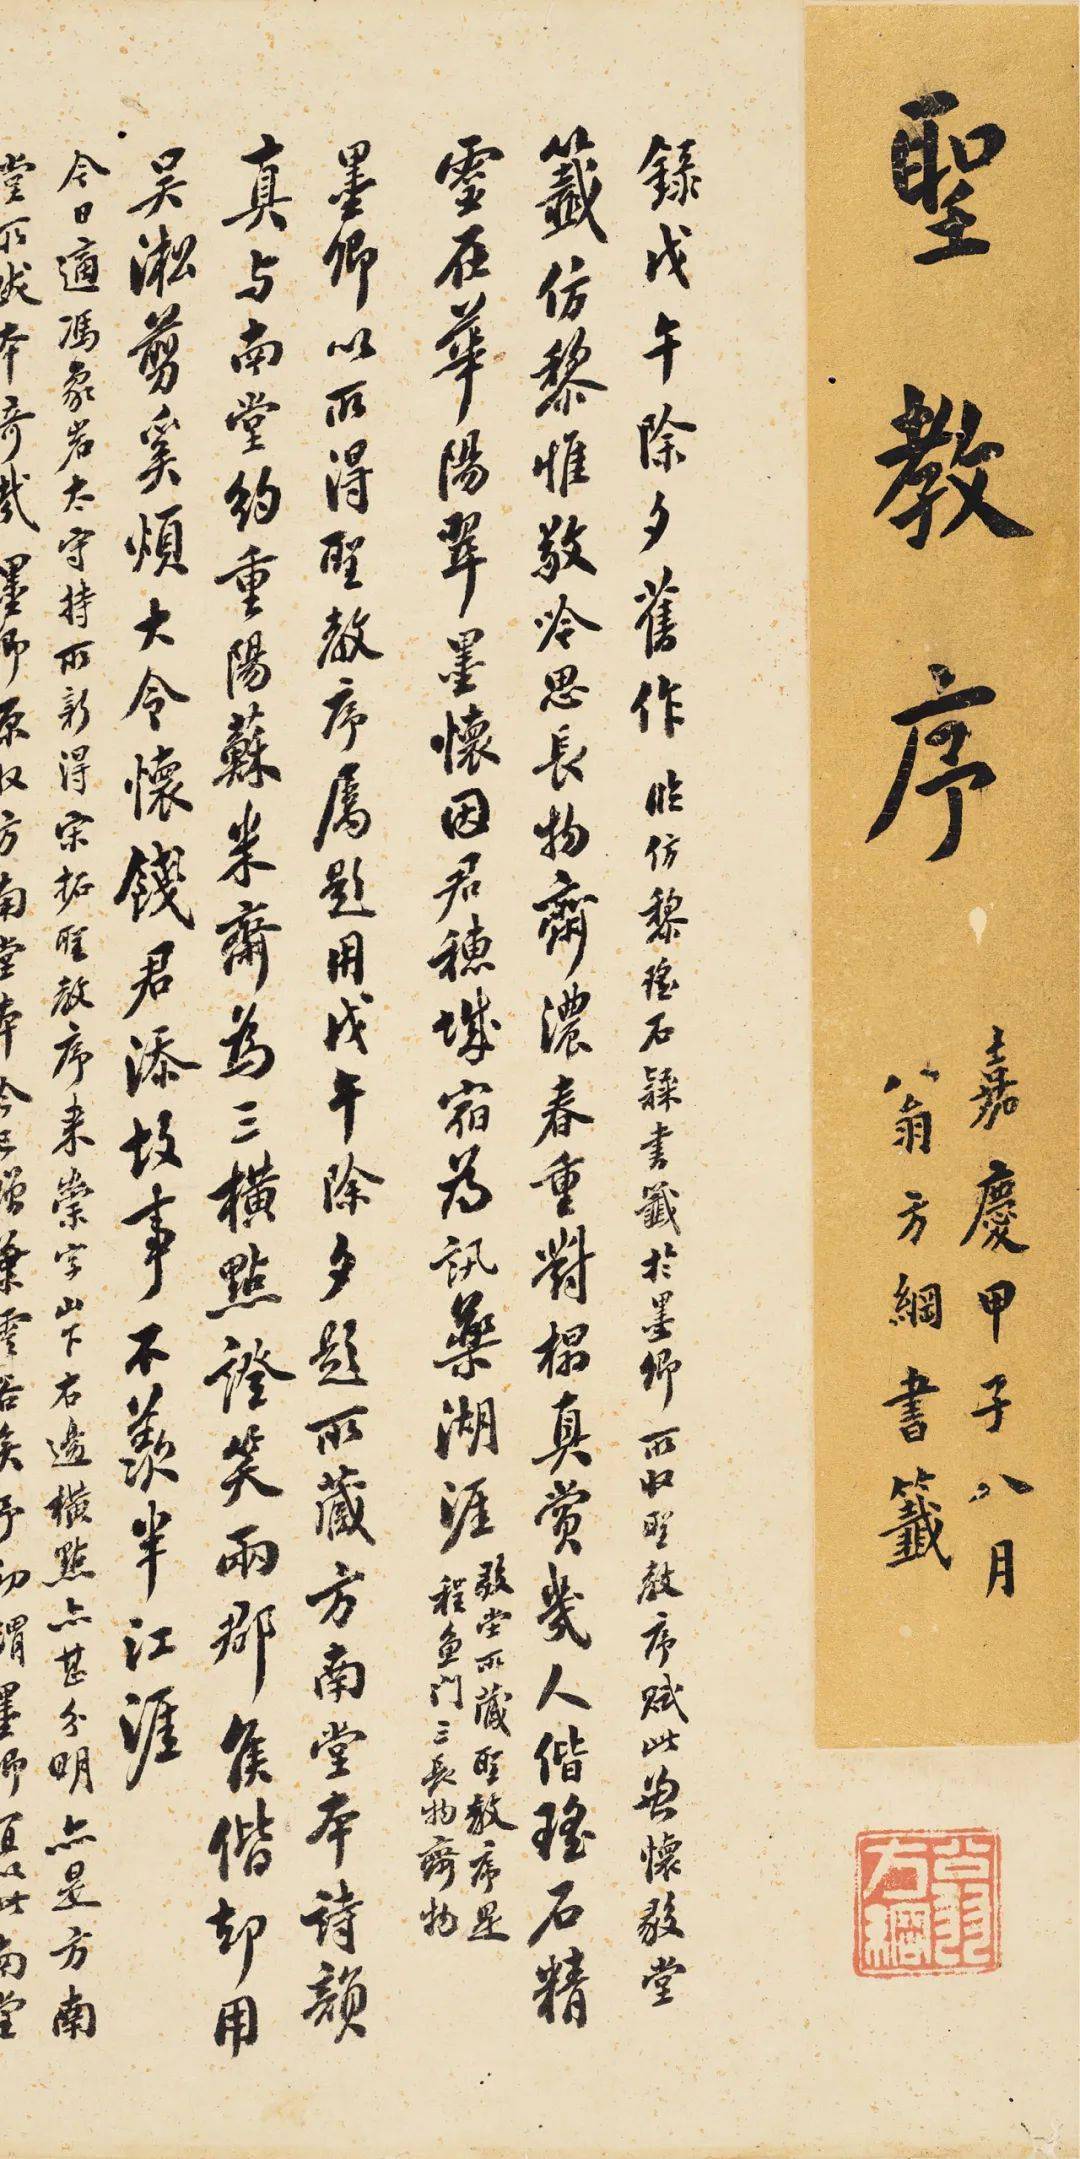 聖教序
嘉慶甲子八月
八翁方綱書籤
翁方綱
錄戊午除夕舊作 昨仿黎瑤石隸書籤於墨卿所收聖教序賦此兼懷敬堂
籤仿黎惟敬吟思長物齋濃春重對榻真賞幾人偕瑤石精
靈在華陽翠墨懷因君穗城宿為訊藥湖涯
敬堂所藏聖教序是
程魚門三長物齋物
墨卿以所得聖教序屬題用戊午除夕題所藏方南堂本詩韻
真与南堂約重陽蘇米齋為三橫點證笑兩郡侯偕却用
吴淞剪奚煩大令懷餞君添故事不羨半江涯
今日適馮象岩太守持所新得宋拓聖教序来崇字山下右邊橫點亦甚分明亦是方南
堂所藏本奇哉墨卿原收方南堂本今已